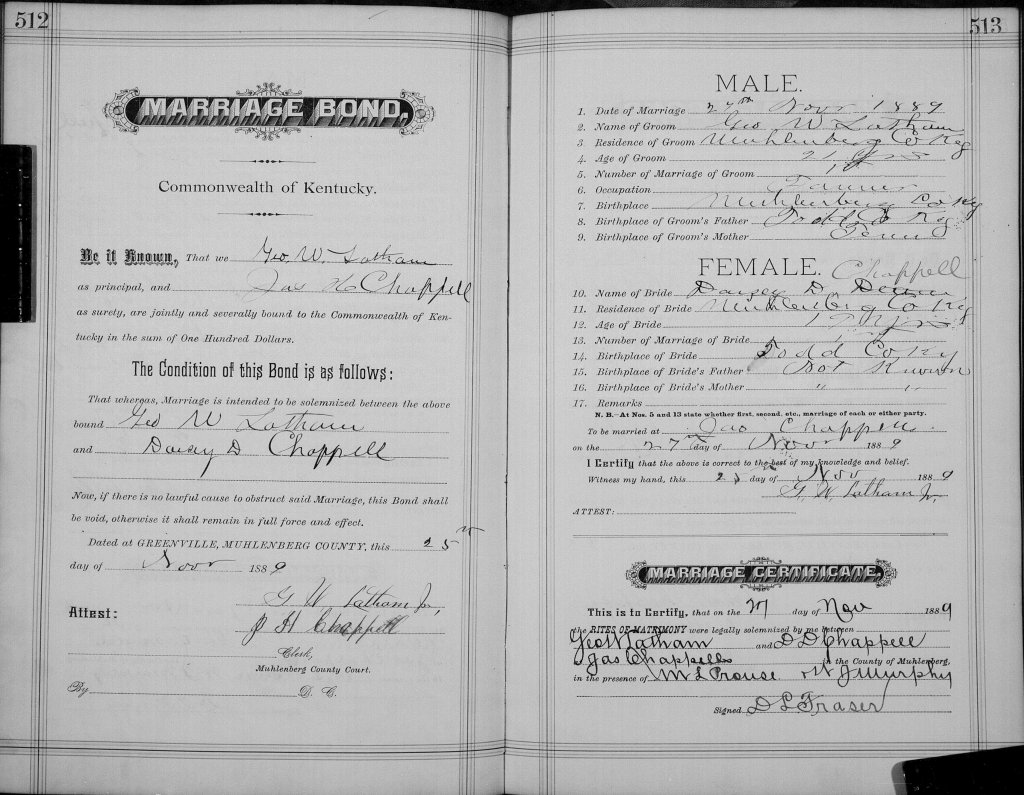 512
MARRIAGE BOND,
Commonwealth of Kentucky.
Be it Known, That we Geo. W. Latham
as principal, and Jas H Chappell
as surely, are jointly and severally bound to the Commonwealth of Ken-
tucky in the sum of One Hundred Dollars.
The Condition of this Bond is as follows:
That whereas, Marriage is intended to be solemnized between the above
bound Geo W Latham
and Daisey D Chappell
Now, if there is no lawful cause to obstruct said Marriage, this Bond shall
be void, otherwise it shall remain in full force and effect.
Dated at GREENVILLE, MUHLENBERG COUNTY, this 25
day of Novr 1889
Attest:
G W Latham Jr,
J H Chappell
Clerk,
Muhlenberg County Court.
By D. C.
513
MALE.
1. Date of Marriage 27th Novr 1889
2. Name of Groom Geo W Latham
3 Residence of Groom Muhlenberg Co Ky
4. Age of Groom 21 yrs
5. Number of Marriage of Groom 1st
6. Occupation Farmer
7. Birthplace Muhlenberg Co Ky
8. Birthplace of Groom's Father Todd Co Ky
9. Birthplace of Groom's Mother Tenn
FEMALE. Chappell
10. Name of Bride Daisey D
11. Residence of Bride Muhlenberg Co Ky
12. Age of Bride yrs
13. Number of Marriage of Bride 1st
14. Birthplace of Bride Todd Co Ky
15. Birthplace of Bride's Father Not Known
16. Birthplace of Bride's Mother " "
17. Remarks
N. B.—At Nos. 5 and 13 state whether first, second, etc., marriage of each or either party.
To be married at Jas Chappells
on the 27th day of Novr 1889
I Certify that the above is correct to the best of my knowledge and belief.
Witness my hand, this 25 day of Nov 1889
G. W Latham Jr.
ATTEST:
MARRIAGE CERTIFICATE.
This is to Certify, that on the 27 day of Nov 1889
the RITES OF MATRIMONY were legally solemnized by me between
Geo W Latham and D D Chappell
Jas Chappells in the County of Muhlenberg,
in the presence of M L Prouse + W J Murphy
Signed D L Fraser